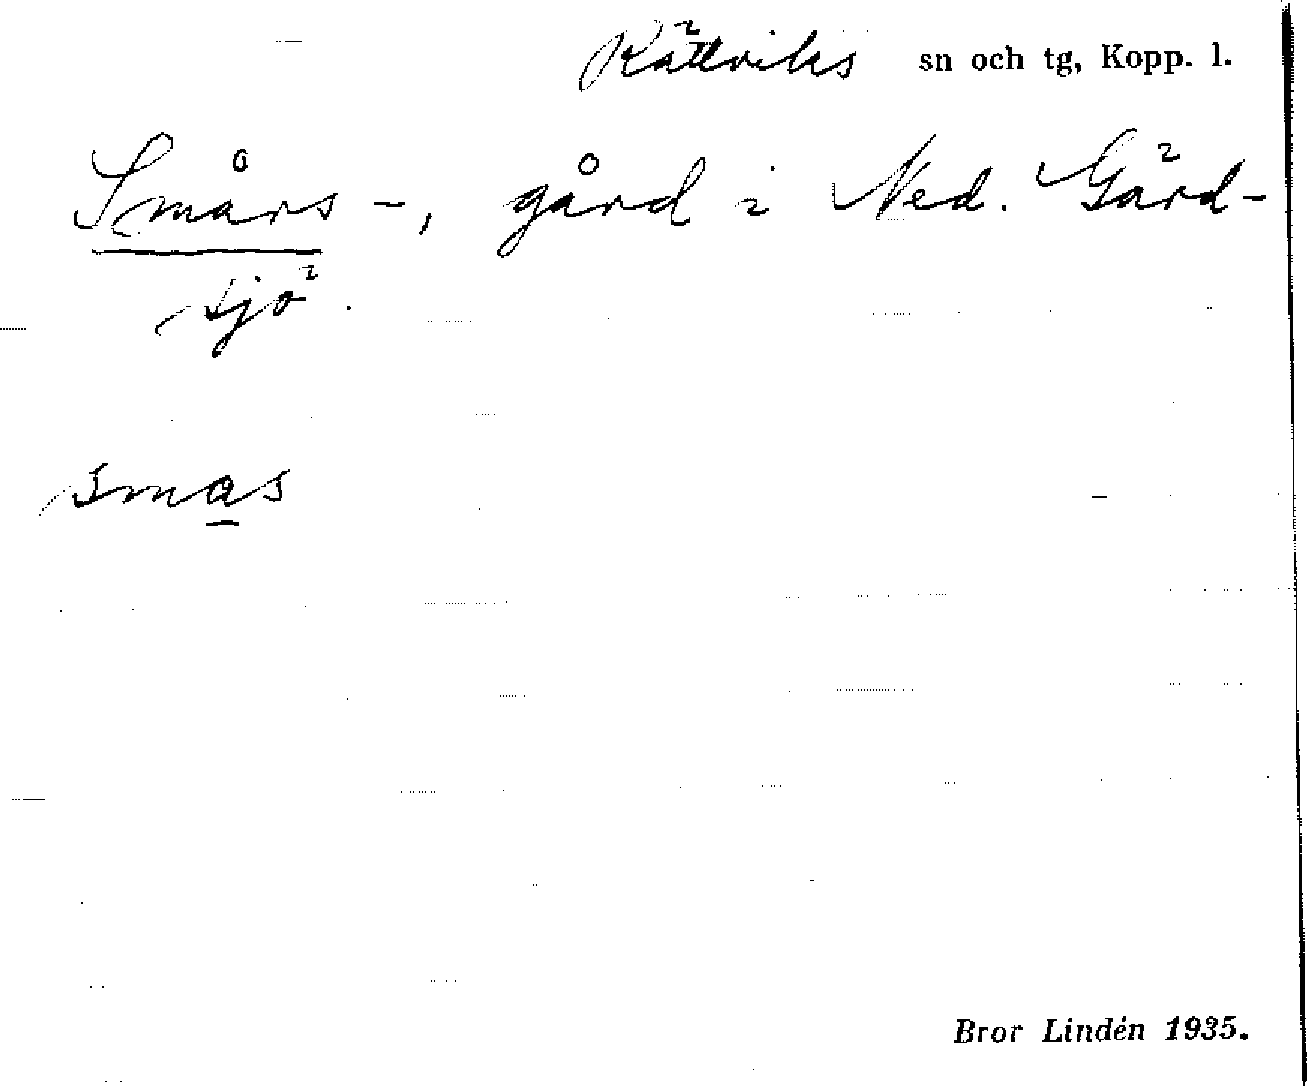 Rättviks sn och tg, Kopp. l.
Smårs-, gård i Ned. Gärd-
sjö.
smas
Bror Lindén 1935.